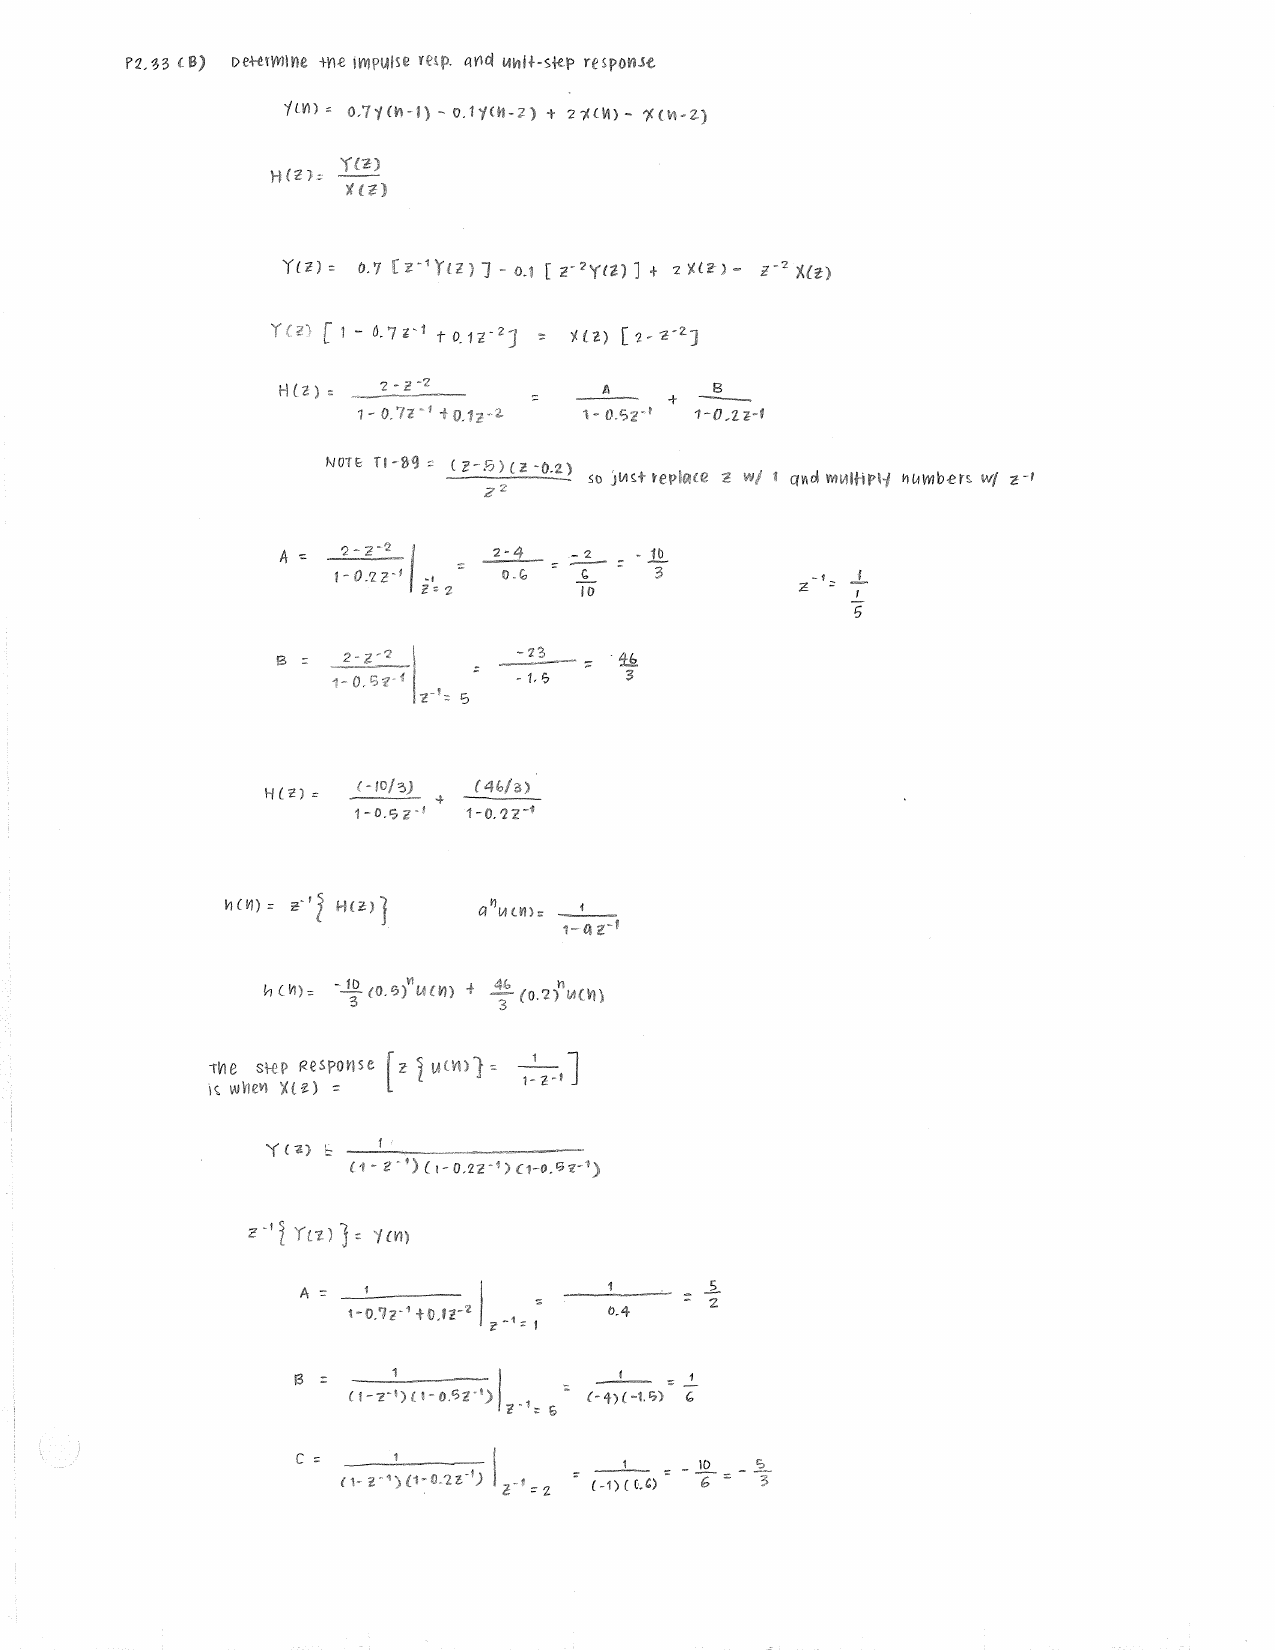 P2.33 (B) Determine the impulse resp. and unit-step response
y(n) = 0.7y(n-1) - 0.1y(n-2) + 2x(n) - x(n-2)
H(z) = Y(z) / X(z)
Y(z) = 0.7 [z^-1 Y(z)] - 0.1 [z^-2 Y(z)] + 2X(z) - z^-2 X(z)
Y(z) [1 - 0.7z^-1 + 0.1z^-2] = X(z) [2 - z^-2]
H(z) = (2 - z^-2) / (1 - 0.7z^-1 + 0.1z^-2) = A / (1 - 0.5z^-1) + B / (1 - 0.2z^-1)
NOTE TI-89 = (z-.5)(z-0.2) / z^2 so just replace z w/ 1 and multiply numbers w/ z^-1
A = (2 - z^-2) / (1 - 0.2z^-1) | z^-1 = 2 = (2-4) / 0.6 = -2 / (6/10) = -10/3 z^-1 = 1 / (1/5)
B = (2 - z^-2) / (1 - 0.5z^-1) | z^-1 = 5 = -23 / -1.5 = 46/3
H(z) = (-10/3) / (1 - 0.5z^-1) + (46/3) / (1 - 0.2z^-1)
h(n) = z^-1 { H(z) } a^n u(n) = 1 / (1 - az^-1)
h(n) = -10/3 (0.5)^n u(n) + 46/3 (0.2)^n u(n)
The step Response [z { u(n) } = 1 / (1 - z^-1)]
is when X(z) =
Y(z) = 1 / (1 - z^-1)(1 - 0.2z^-1)(1 - 0.5z^-1)
z^-1 { Y(z) } = y(n)
A = 1 / (1 - 0.7z^-1 + 0.1z^-2) | z^-1 = 1 = 1 / 0.4 = 5/2
B = 1 / (1 - z^-1)(1 - 0.5z^-1) | z^-1 = 5 = 1 / (-4)(-1.5) = 1/6
C = 1 / (1 - z^-1)(1 - 0.2z^-1) | z^-1 = 2 = 1 / (-1)(0.6) = -10/6 = -5/3